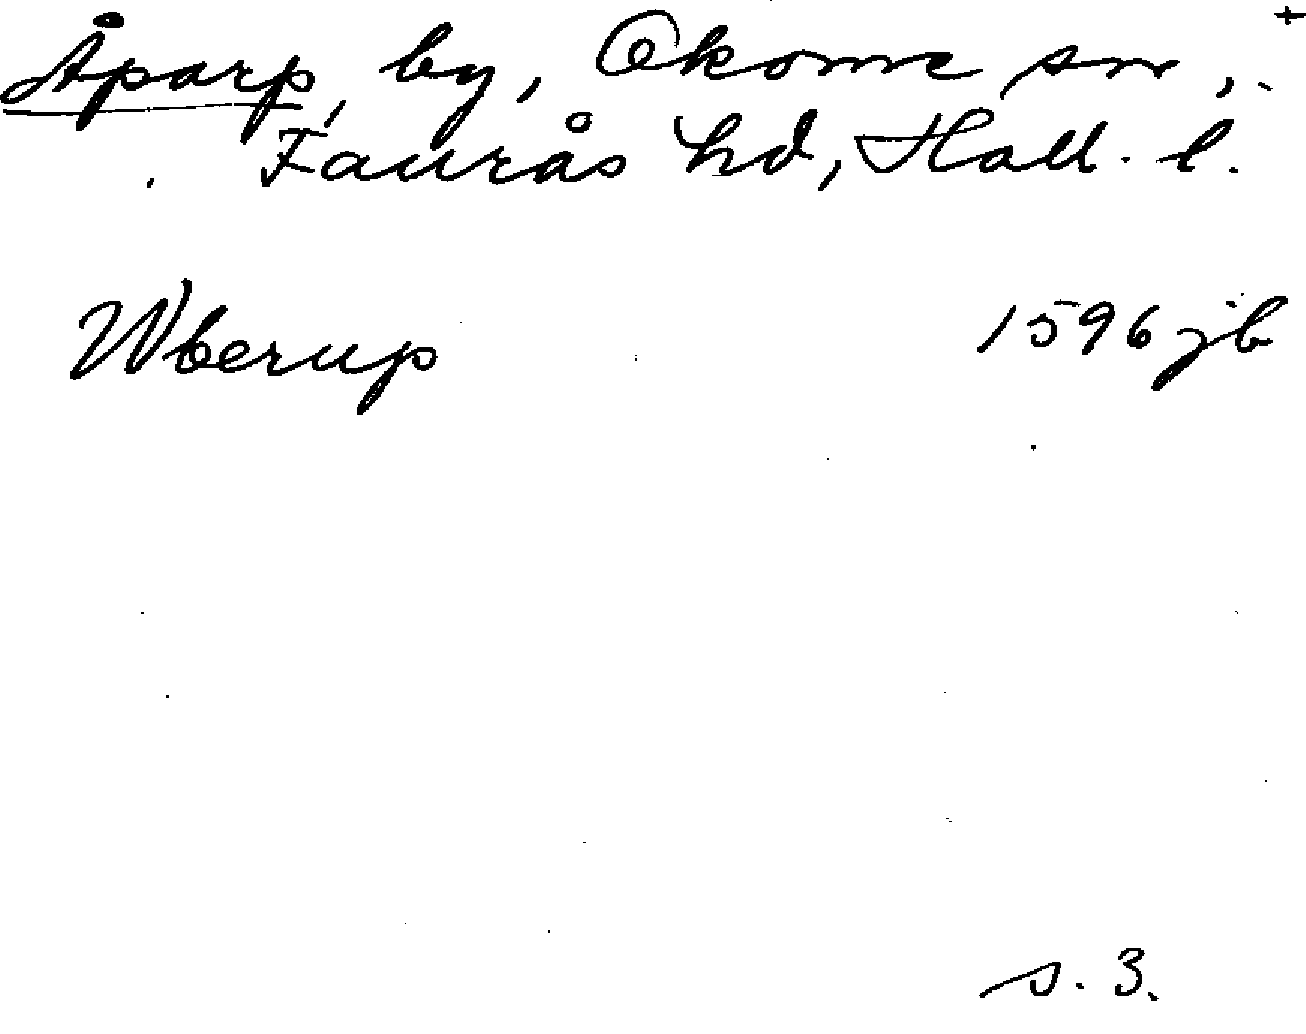 Åparp, by, Okome sn, +
Faurås hd, Hall. l.
Wberup 1596 jb
s. 3.